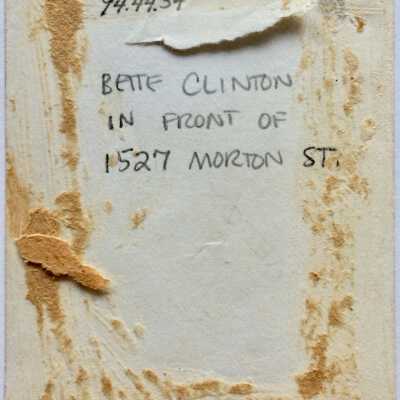 94.44.54
BETTE CLINTON
IN FRONT OF
1527 MORTON ST.